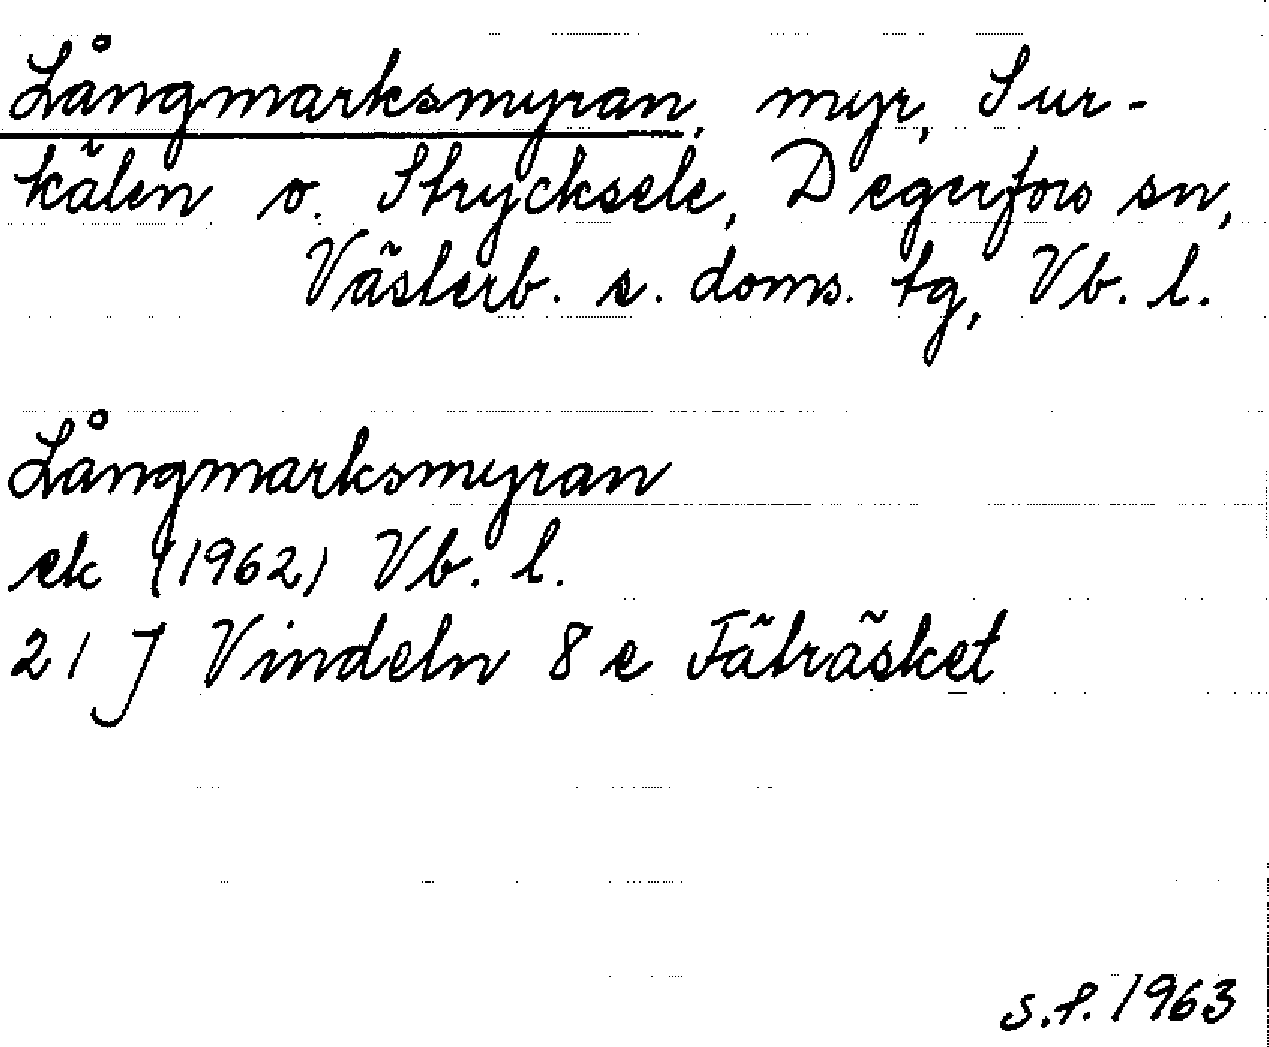 Långmarksmyran, myr, Sur-
kälen o. Strycksele, Degerfors sn,
Västerb. s. doms. tg, Vb. l.
Långmarksmyran
ek (1962) Vb. l.
21 J Vindeln 8 e Fäbräsket
s.f. 1963